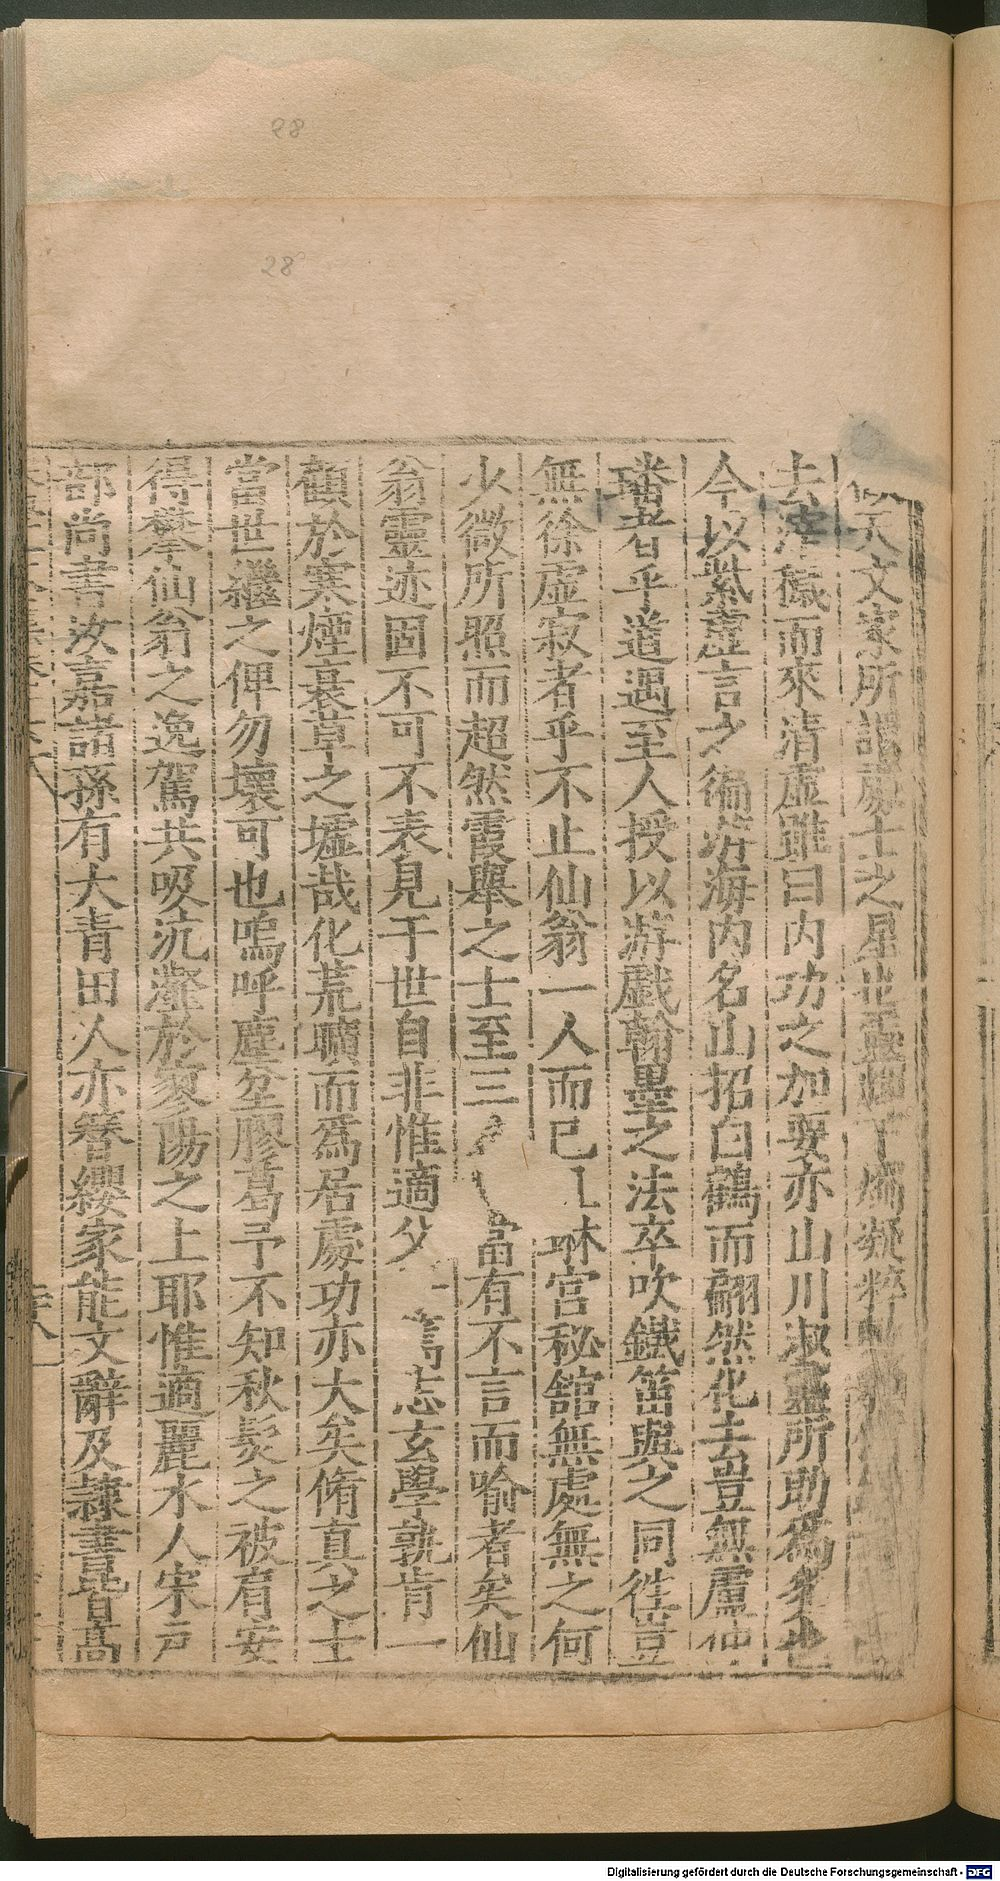 天文家所謂處士之星
去滓穢而來清虛雖曰内功之加要亦山川淑靈所助爲多也
今以紫虛言之徧游海内名山招白鶴而翩然化去豈無盧仲
璠者乎道遇至人授以游戲翰墨之法卒吹鐵笛與之同徃豈
無徐虛寂者乎不止仙翁一人而已 琳宮秘舘無處無之何
少微所照而超然霞舉之士至三 當有不言而喻者矣仙
翁靈迹固不可不表見于世自非惟適 志玄學孰肯一
顧於寒煙衰草之墟哉化荒曠而爲居處功亦大矣脩真之士
當世繼之俾勿壞可也嗚呼塵坌膠葛予不知秋髮之被肩安
得攀仙翁之逸駕共吸沆瀣於寥陽之上耶惟適麗水人宋戸
部尚書汝嘉諸孫有大青田人亦簪纓家能文辭及隷書皆髙
28
28
Digitalisierung gefördert durch die Deutsche Forschungsgemeinschaft - DFG